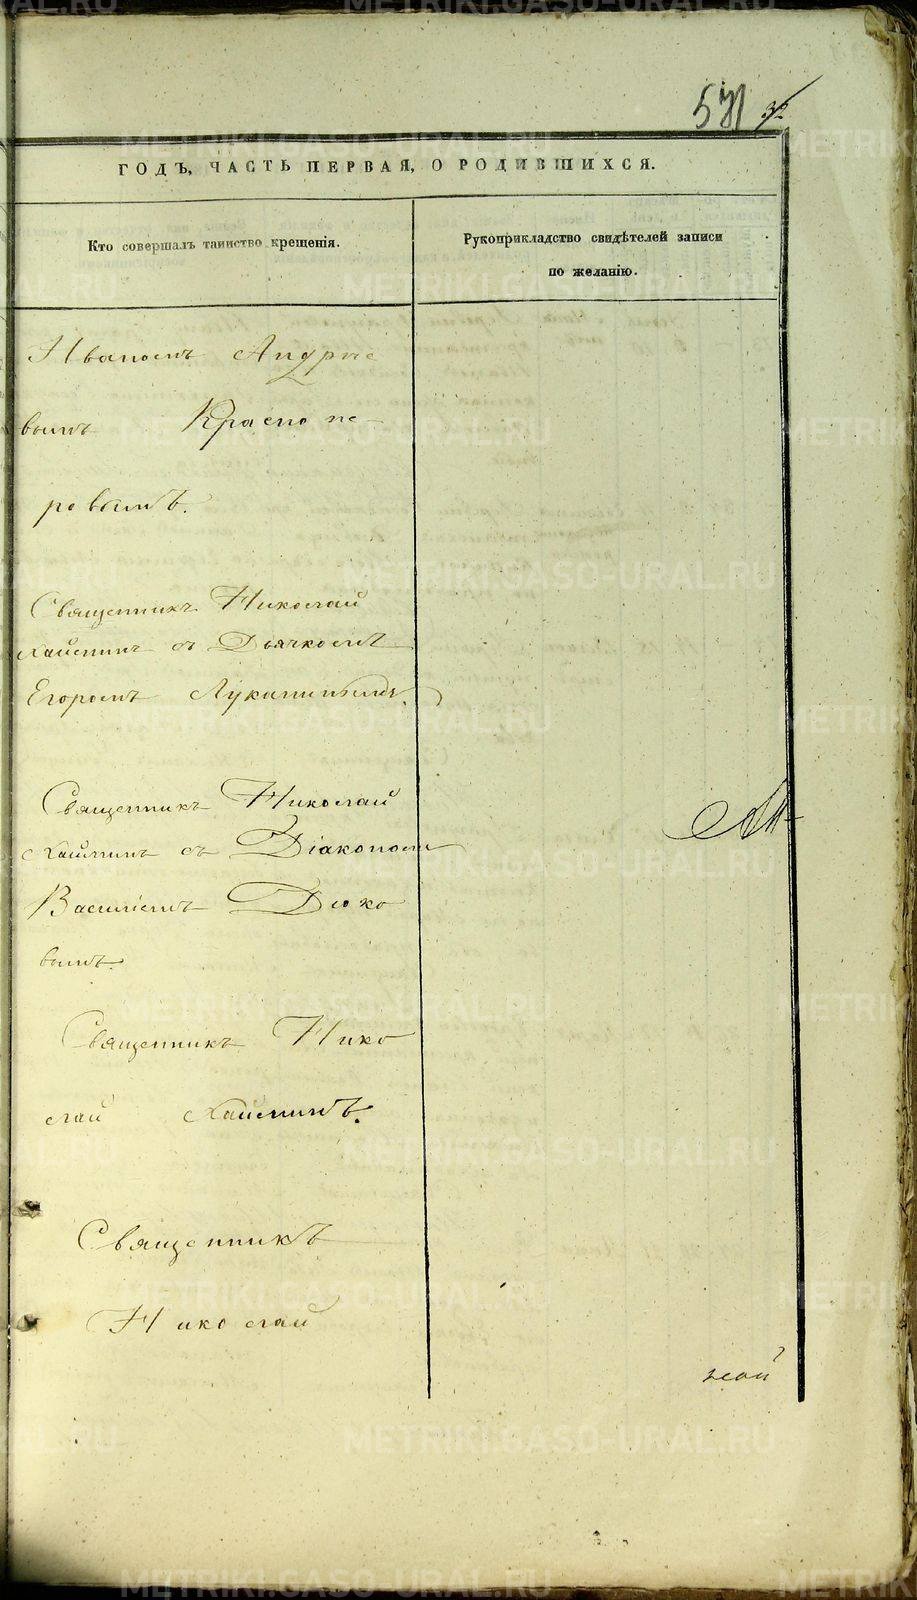 571 32
ГОДЪ, ЧАСТЬ ПЕРВАЯ, О РОДИВШИХСЯ.
Кто совершалъ таинство крещенія.
Рукоприкладство свидѣтелей записи
по желанію.
Иваномъ Андрѣе
вымъ Краснопе-
ровымъ.
Священникъ Николай
Хаймин съ Дьячкомъ
Егоромъ
Священникъ Николай
Хайминъ съ Діакономъ
Василіемъ Дюко
вымъ.
Священникъ Нико
лай Хайминъ.
Священникъ
Николай
METRIKI.GASO-URAL.RU